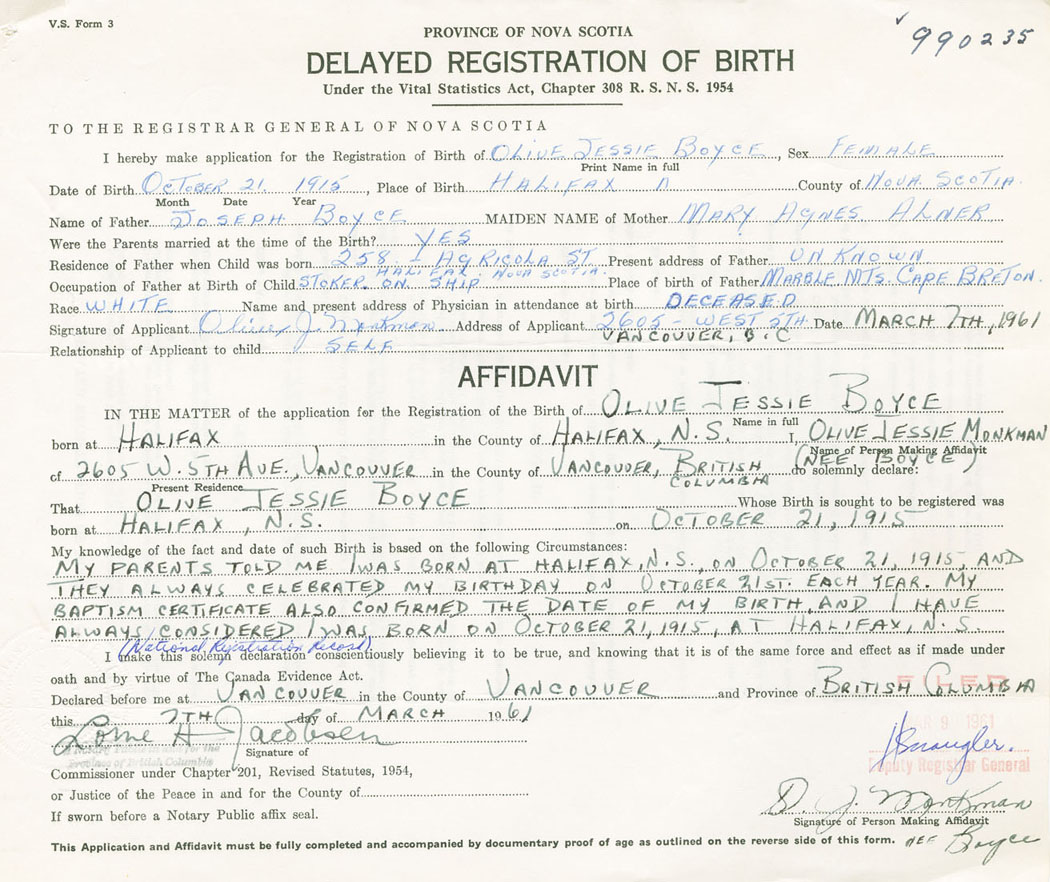 V.S. Form 3
990235
PROVINCE OF NOVA SCOTIA
DELAYED REGISTRATION OF BIRTH
Under the Vital Statistics Act, Chapter 308 R. S. N. S. 1954
TO THE REGISTRAR GENERAL OF NOVA SCOTIA
I hereby make application for the Registration of Birth of OLIVE JESSIE BOYCE, Sex FEMALE
Print Name in full
Date of Birth OCTOBER 21 1915, Place of Birth HALIFAX County of NOVA SCOTIA.
Month Date Year
Name of Father JOSEPH BOYCE MAIDEN NAME of Mother MARY AGNES ALNER
Were the Parents married at the time of the Birth? YES
Residence of Father when Child was born 258 AGRICOLA ST Present address of Father UNKNOWN
HALIFAX. NOVA SCOTIA.
Occupation of Father at Birth of Child STOKER ON SHIP Place of birth of Father MARBLE MTS. CAPE BRETON.
Race WHITE Name and present address of Physician in attendance at birth DECEASED
Signature of Applicant Olive J. Monkman Address of Applicant 2605 - WEST 5TH Date MARCH 7TH, 1961
VANCOUVER, B.C
Relationship of Applicant to child SELF
AFFIDAVIT
IN THE MATTER of the application for the Registration of the Birth of OLIVE JESSIE BOYCE
Name in full
born at HALIFAX in the County of HALIFAX, N.S. I, OLIVE JESSIE MONKMAN
Name of Person Making Affidavit
(NEE BOYCE)
of 2605 W. 5TH AVE., VANCOUVER in the County of VANCOUVER, BRITISH COLUMBIA do solemnly declare:
Present Residence
That OLIVE JESSIE BOYCE Whose Birth is sought to be registered was
born at HALIFAX, N.S. on OCTOBER 21, 1915
My knowledge of the fact and date of such Birth is based on the following Circumstances:
MY PARENTS TOLD ME I WAS BORN AT HALIFAX, N.S., ON OCTOBER 21, 1915, AND
THEY ALWAYS CELEBRATED MY BIRTHDAY ON OCTOBER 21ST. EACH YEAR. MY
BAPTISM CERTIFICATE ALSO CONFIRMED THE DATE OF MY BIRTH, AND I HAVE
ALWAYS CONSIDERED I WAS BORN ON OCTOBER 21, 1915, AT HALIFAX, N.S.
(National Registration Record)
I make this solemn declaration conscientiously believing it to be true, and knowing that it is of the same force and effect as if made under
oath and by virtue of The Canada Evidence Act.
FILED
Declared before me at VANCOUVER in the County of VANCOUVER and Province of BRITISH COLUMBIA
this 7TH day of MARCH 1961
MAR 9 1961
Lorne H. Jacobsen
Signature of
Province of British Columbia
Deputy Registrar General
Commissioner under Chapter 201, Revised Statutes, 1954,
or Justice of the Peace in and for the County of
If sworn before a Notary Public affix seal.
O. J. Monkman
Signature of Person Making Affidavit
NEE Boyce
This Application and Affidavit must be fully completed and accompanied by documentary proof of age as outlined on the reverse side of this form.